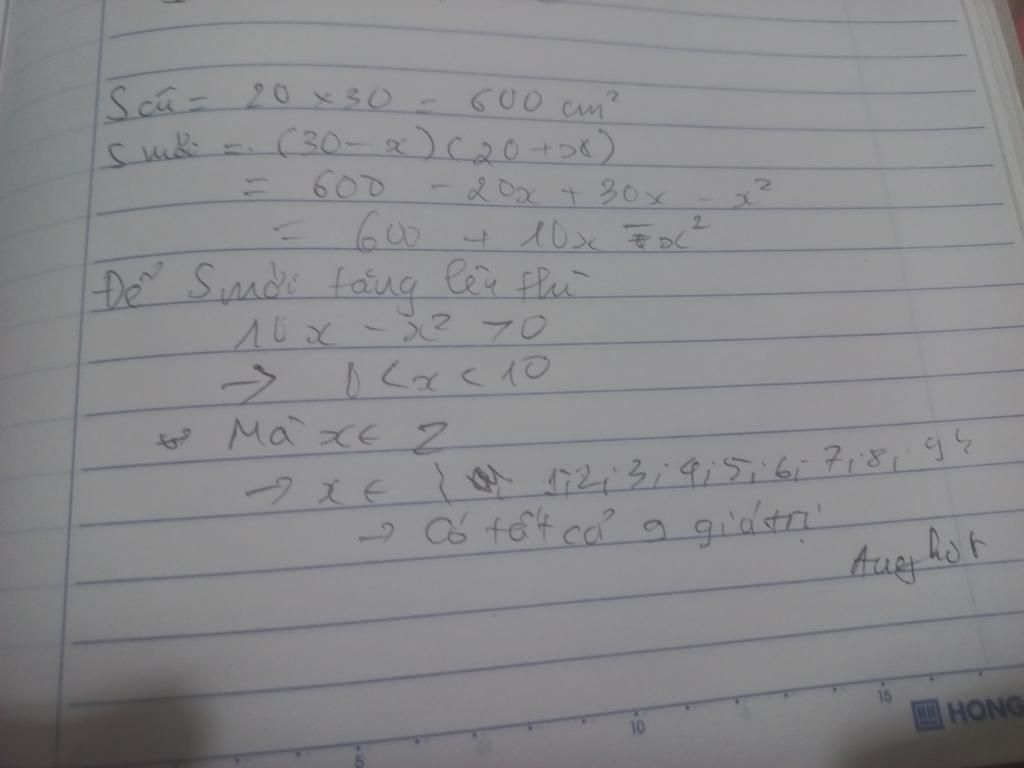 S cũ = 20 × 30 = 600 cm²
S mới = (30 - x)(20 + x)
= 600 - 20x + 30x - x²
= 600 + 10x - x²
Để S mới tăng lên thì
10x - x² > 0
→ 0 < x < 10
Mà x ∈ Z
→ x ∈ { 1; 2; 3; 4; 5; 6; 7; 8; 9 }
→ Có tất cả 9 giá trị
5
10
15
HONG